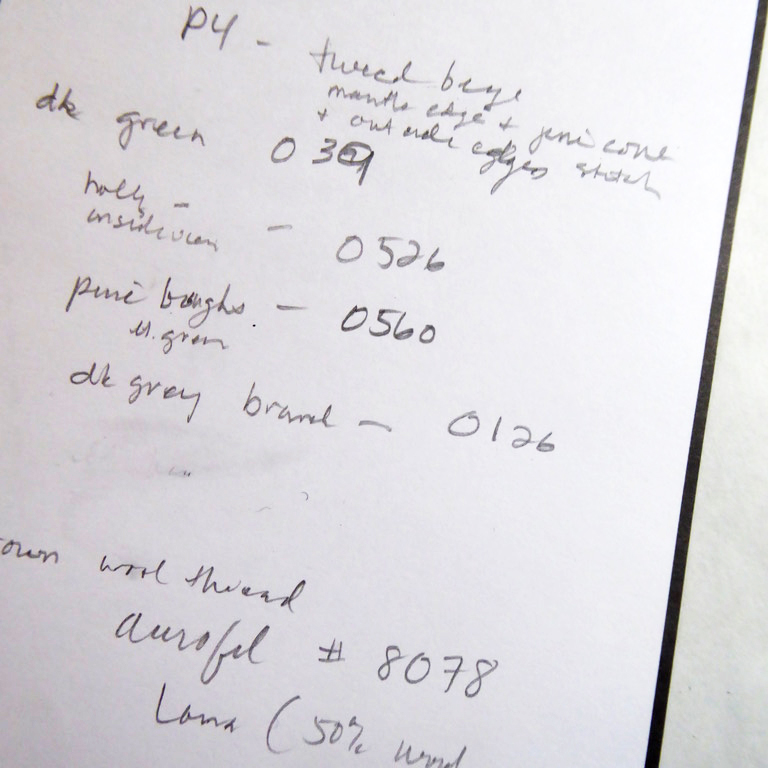 P4 - tweed beige
mantle edge + pine cone
+ outside edges stitch
dk green 0391
holly -
inside vein - 0526
pine boughs - 0560
green
dk grey - 0126
own wool thread
aurofil # 8078
Lana (50% wool